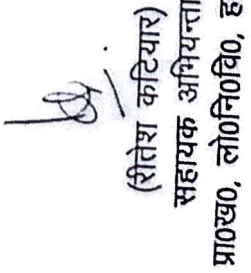 (रीतेश कटियार)
सहायक अभियन्ता
प्रा०ख०, लो०नि०वि०,